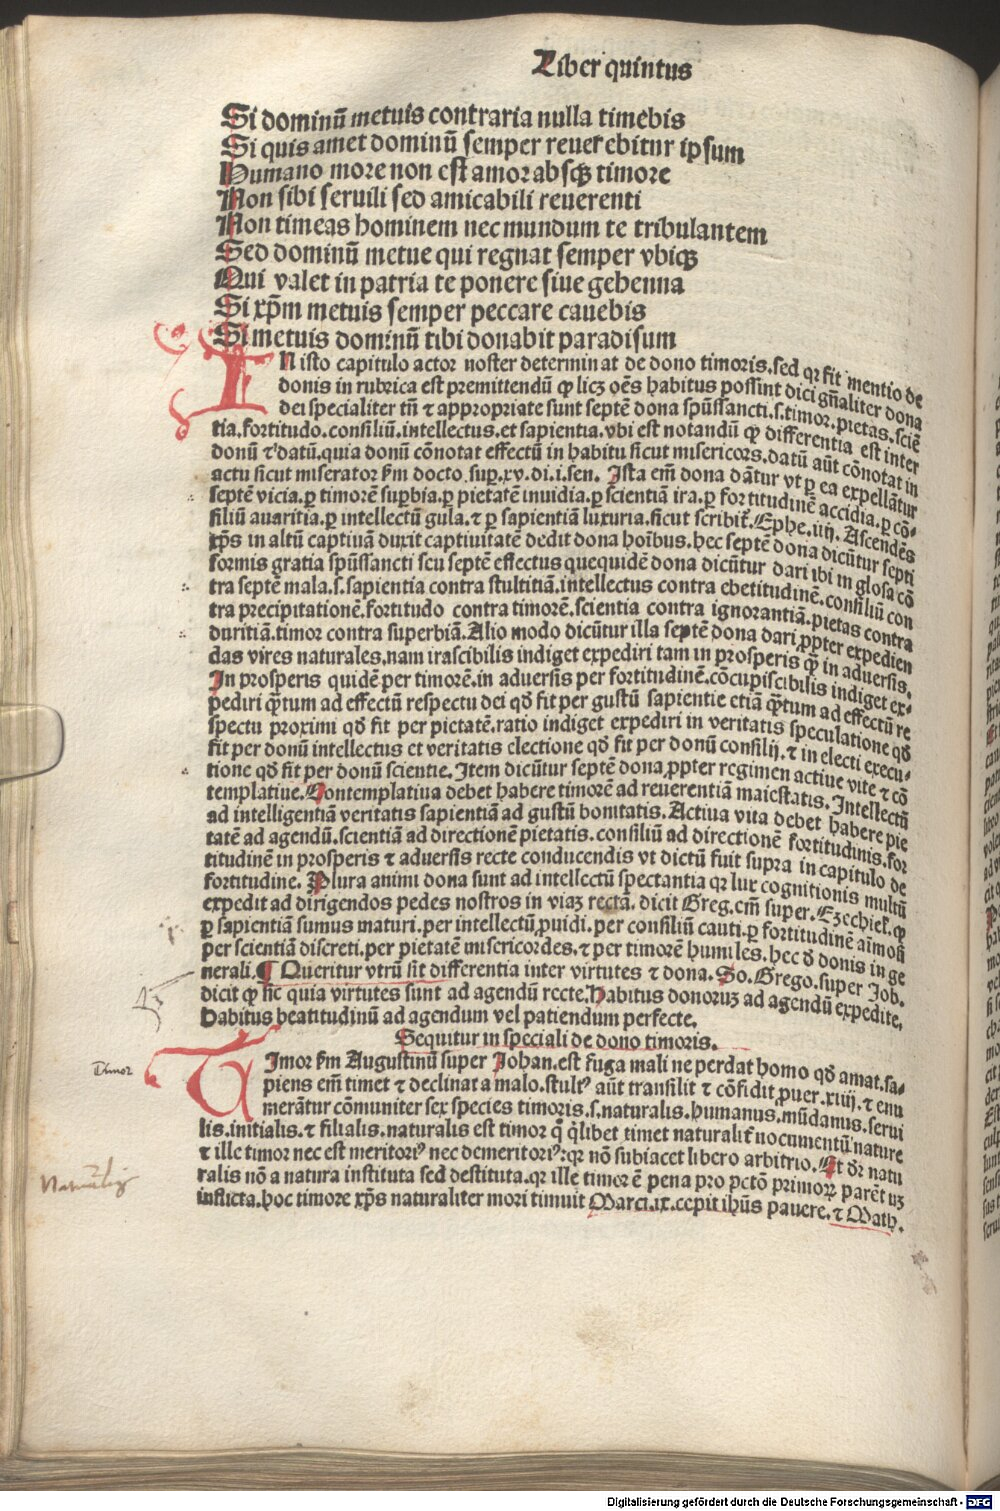 Liber quintus
Si dominū metuis contraria nulla timebis
Si quis amet dominū semper reuerebitur ipsum
Humano more non est amor absqꝫ timore
Non sibi seruili sed amicabili reuerenti
Non timeas hominem nec mundum te tribulantem
Sed dominū metue qui regnat semper vbiqꝫ
Qui valet in patria te ponere siue gehenna
Si xp̄m metuis semper peccare cauebis
Si metuis dominū tibi donabit paradisum
IN isto capitulo actor noster determinat de dono timoris. sed qꝛ fit mentio de
donis in rubrica est premittendū ꝙ licꝫ oēs habitus possint dici gn̄aliter dona
dei specialiter tn̄ ⁊ appropriate sunt septē dona spūssancti. s. timor. pietas. sciē
tia. fortitudo. consiliū. intellectus. et sapientia. vbi est notandū ꝙ differentia est inter
donū ⁊ datū. quia donū cōnotat effectū in habitu sicut misericors. datū aūt cōnotat in
actu sicut miserator ẜm docto. sup̱. xv. di. i. sen. Ista em̄ dona dātur vt p̱ ea expellātur
septē vicia. p̱ timorē sup̱bia. p̱ pietatē inuidia. p̱ scientiā ira. p̱ fortitudinē accidia. p̱ cō-
siliū auaritia. p̱ intellectū gula. ⁊ p̱ sapientiā luxuria. sicut scribit̄. Ephe. iiij. Ascendēs
xp̄s in altū captiuā duxit captiuitatē dedit dona hoībus. hec septē dona dicūtur septi
formis gratia spūssancti seu septē effectus quequidē dona dicūtur dari ibi in glosa cō
tra septē mala. s. sapientia contra stultitiā. intellectus contra ebetitudinē. consiliū con
tra precipitationē. fortitudo contra timorē. scientia contra ignorantiā. pietas contra
duritiā. timor contra superbiā. Alio modo dicūtur illa septē dona dari ꝓpter expedien
das vires naturales. nam irascibilis indiget expediri tam in prosperis q̄ꝫ in aduersis.
In prosperis quidē per timorē. in aduersis per fortitudinē. cōcupiscibilis indiget ex-
pediri q̄ꝫtum ad effectū respectu dei qd̄ fit per gustū sapientie etiā q̄ꝫtum ad effectū re
spectu proximi qd̄ fit per pietatē. ratio indiget expediri in veritatis speculatione qd̄
fit per donū intellectus et veritatis electione qd̄ fit per donū consilij. ⁊ in electi execu-
tione qd̄ fit per donū scientie. Item dicūtur septē dona ꝓpter regimen actiue vite ⁊ cō
templatiue. Contemplatiua debet habere timorē ad reuerentiā maiestatis. Intellectū
ad intelligentiā veritatis sapientiā ad gustū bonitatis. Actiua vita debet habere pie
tatē ad agendū. scientiā ad directionē pietatis. consiliū ad directionē fortitudinis. for
titudinē in prosperis ⁊ aduersis recte conducendis vt dictū fuit supra in capitulo de
fortitudine. Plura animi dona sunt ad intellectū spectantia qꝛ lux cognitionis multū
expedit ad dirigendos pedes nostros in viaꝫ rectā. dicit Greg. em̄ super. Ezechiel. ꝙ
p̱ sapientiā sumus maturi. per intellectū ꝓuidi. per consiliū cauti. p̱ fortitudinē aīmosi
per scientiā discreti. per pietatē misericordes. ⁊ per timorē humiles. hec d̄ donis in ge
nerali. ¶ Queritur vtrū sit differentia inter virtutes ⁊ dona. So. Grego. super Job.
dicit ꝙ sic quia virtutes sunt ad agendū recte. Habitus donoruꝫ ad agendū expedite.
Habitus beatitudinū ad agendum vel patiendum perfecte.
Sequitur in speciali de dono timoris.
Timor
TImor ẜm Augustinū super Johan. est fuga mali ne perdat homo qd̄ amat. sa-
piens em̄ timet ⁊ declinat a malo. stultꝰ aūt transilit ⁊ cōfidit ꝓuer. xiiij. ⁊ enu
merātur cōmuniter sex species timoris. s. naturalis. humanus. mūdanus. serui
lis. initialis. ⁊ filialis. naturalis est timor q̄ q̇libet timet naturalit̄ nocumentū nature
⁊ ille timor nec est meritoriꝰ nec demeritoriꝰ. qꝛ nō subiacet libero arbitrio. Et dr̄ natu
ralis nō a natura instituta sed destituta. qꝛ ille timor ē pena pro pctō primoꝝ parētuꝫ
inflicta. hoc timore xp̄s naturaliter mori timuit Marci. ix. cepit ihūs pauere. ⁊ Math.
Digitalisierung gefördert durch die Deutsche Forschungsgemeinschaft - DFG